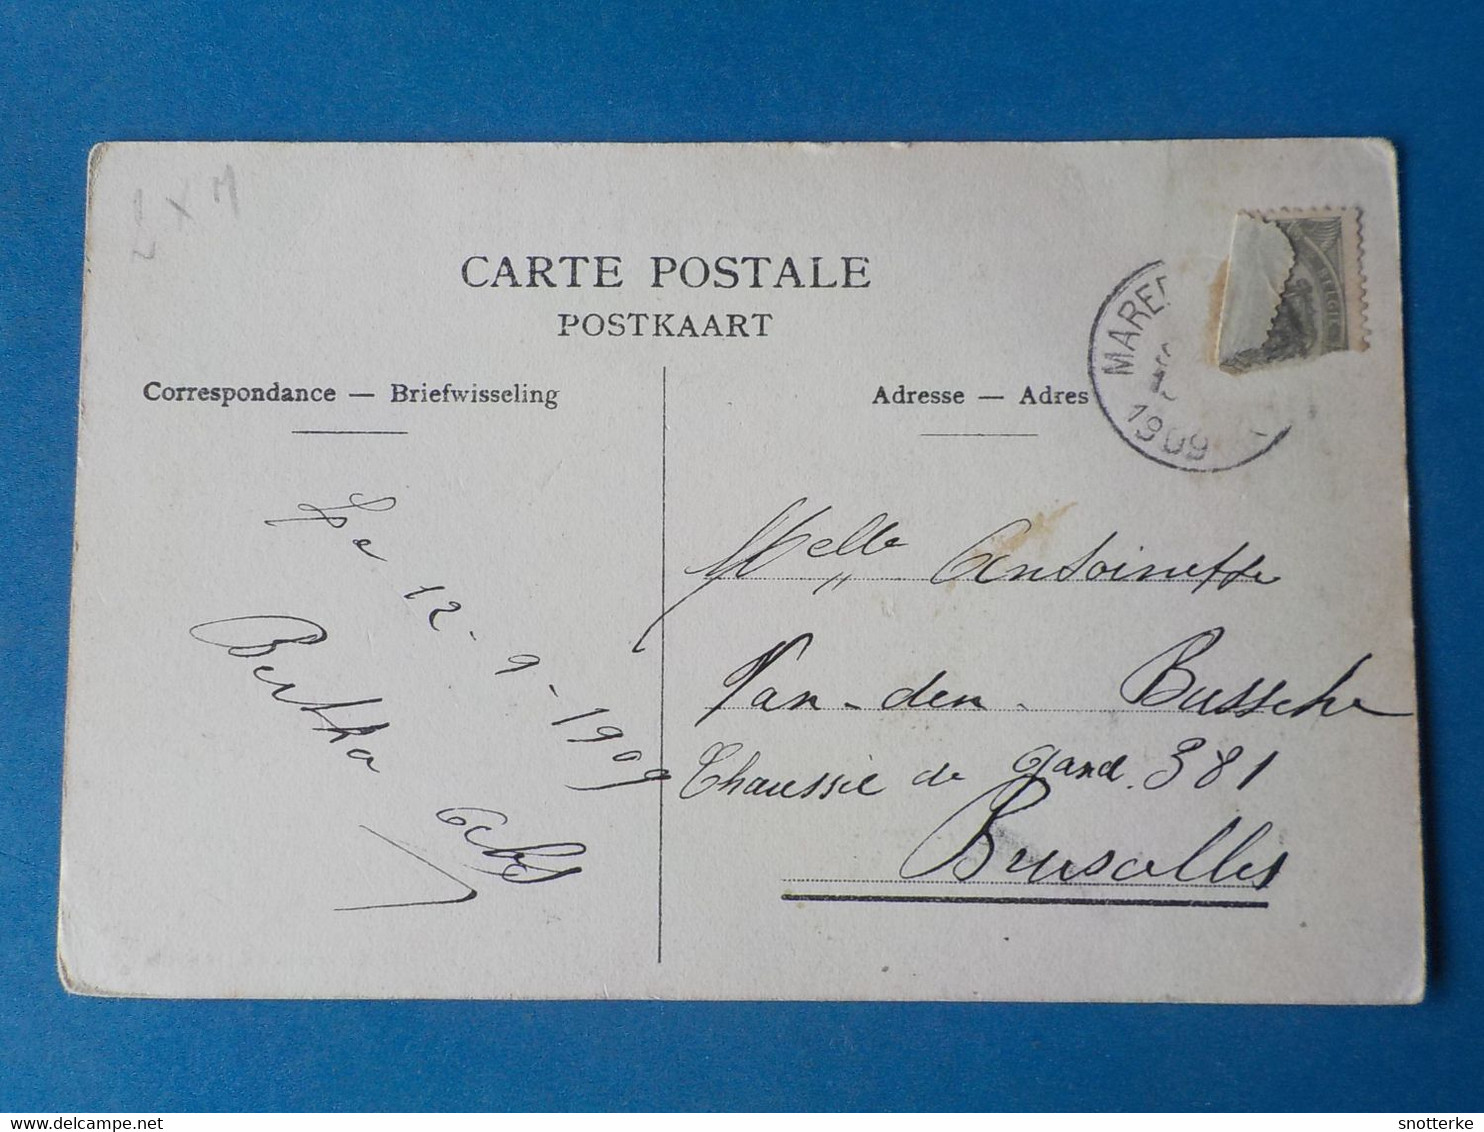 L x M
CARTE POSTALE
POSTKAART
Correspondance — Briefwisseling
Adresse — Adres
MARED
1909
BELGIË
Le 12-9-1909
Bertha
Melle Antoinette
Van-den-Bussche
Chaussée de Gand. 381
Bruxelles
snotterke